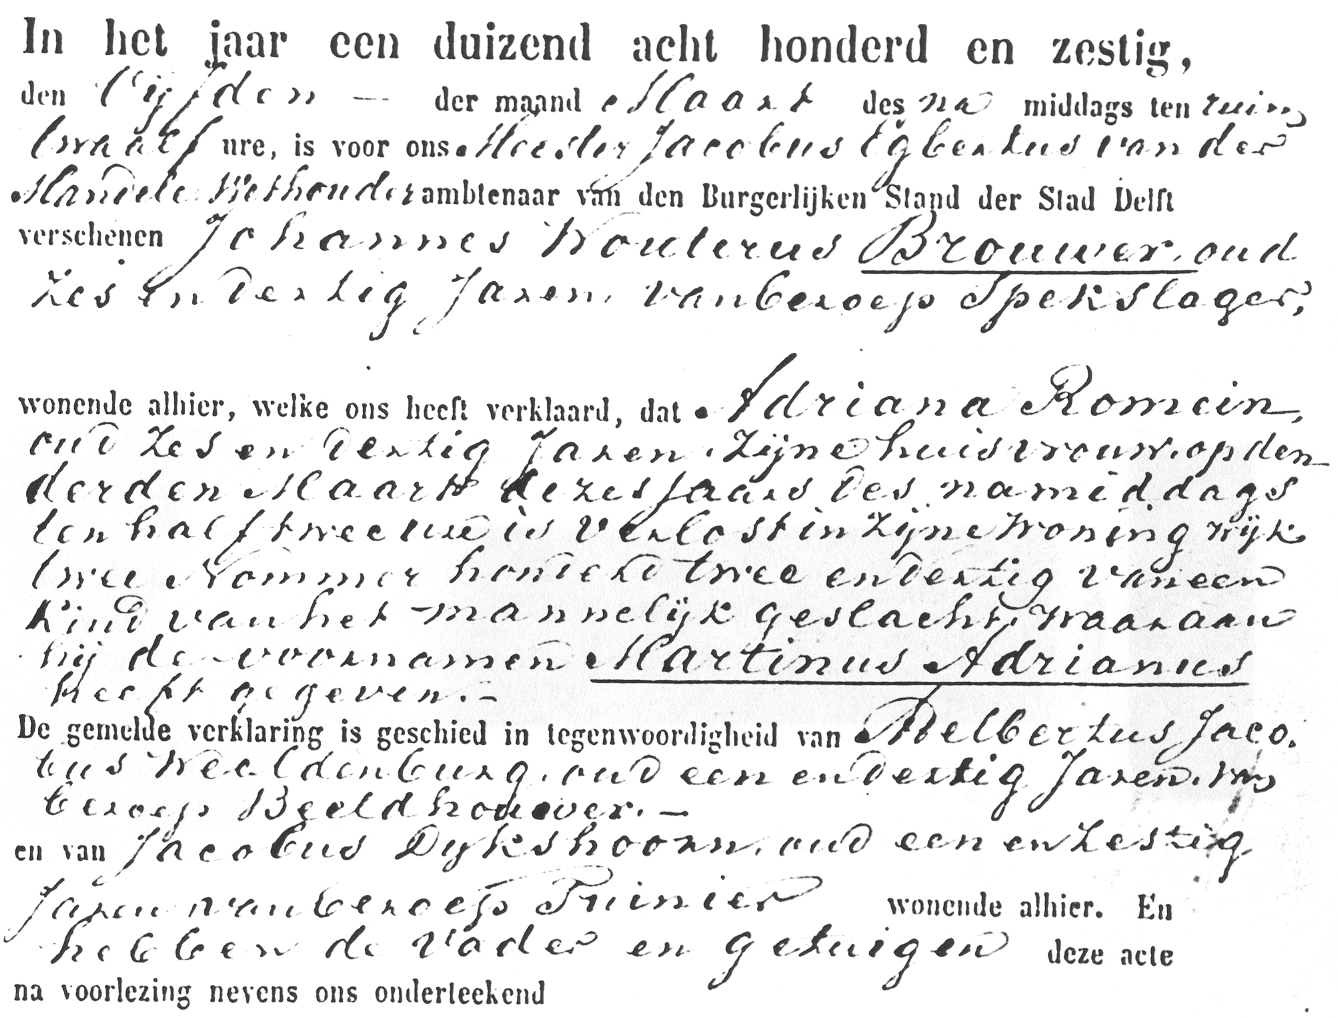 In het jaar een duizend acht honderd en zestig,
den Vijfden — der maand Maart des na middags ten ruim
twaalf ure, is voor ons Meester Jacobus Egbertus van der
Mandele Wethouder ambtenaar van den Burgerlijken Stand der Stad Delft
verschenen Johannes Wouterus Brouwer, oud
Zes en dertig Jaren, van beroep Spekslager,
wonende alhier, welke ons heeft verklaard, dat Adriana Romein,
oud Zes en dertig Jaren, Zijne huisvrouw, op den
derden Maart dezes Jaars des namiddags
ten half twee ure is verlost in Zijne Woning wijk
twee Nommer honderd twee en dertig van een
Kind van het mannelijk geslacht, waaraan
hij de voornamen Martinus Adrianus
heeft gegeven.—
De gemelde verklaring is geschied in tegenwoordigheid van Melbertus Jaco-
bus Weeldenburg, oud een en dertig Jaren, van
beroep Beeldhouwer.—
en van Jacobus Dijkshoorn, oud een en Zestig
Jaren van beroep Tuinier wonende alhier. En
hebben de Vader en getuigen deze acte
na voorlezing nevens ons onderteekend